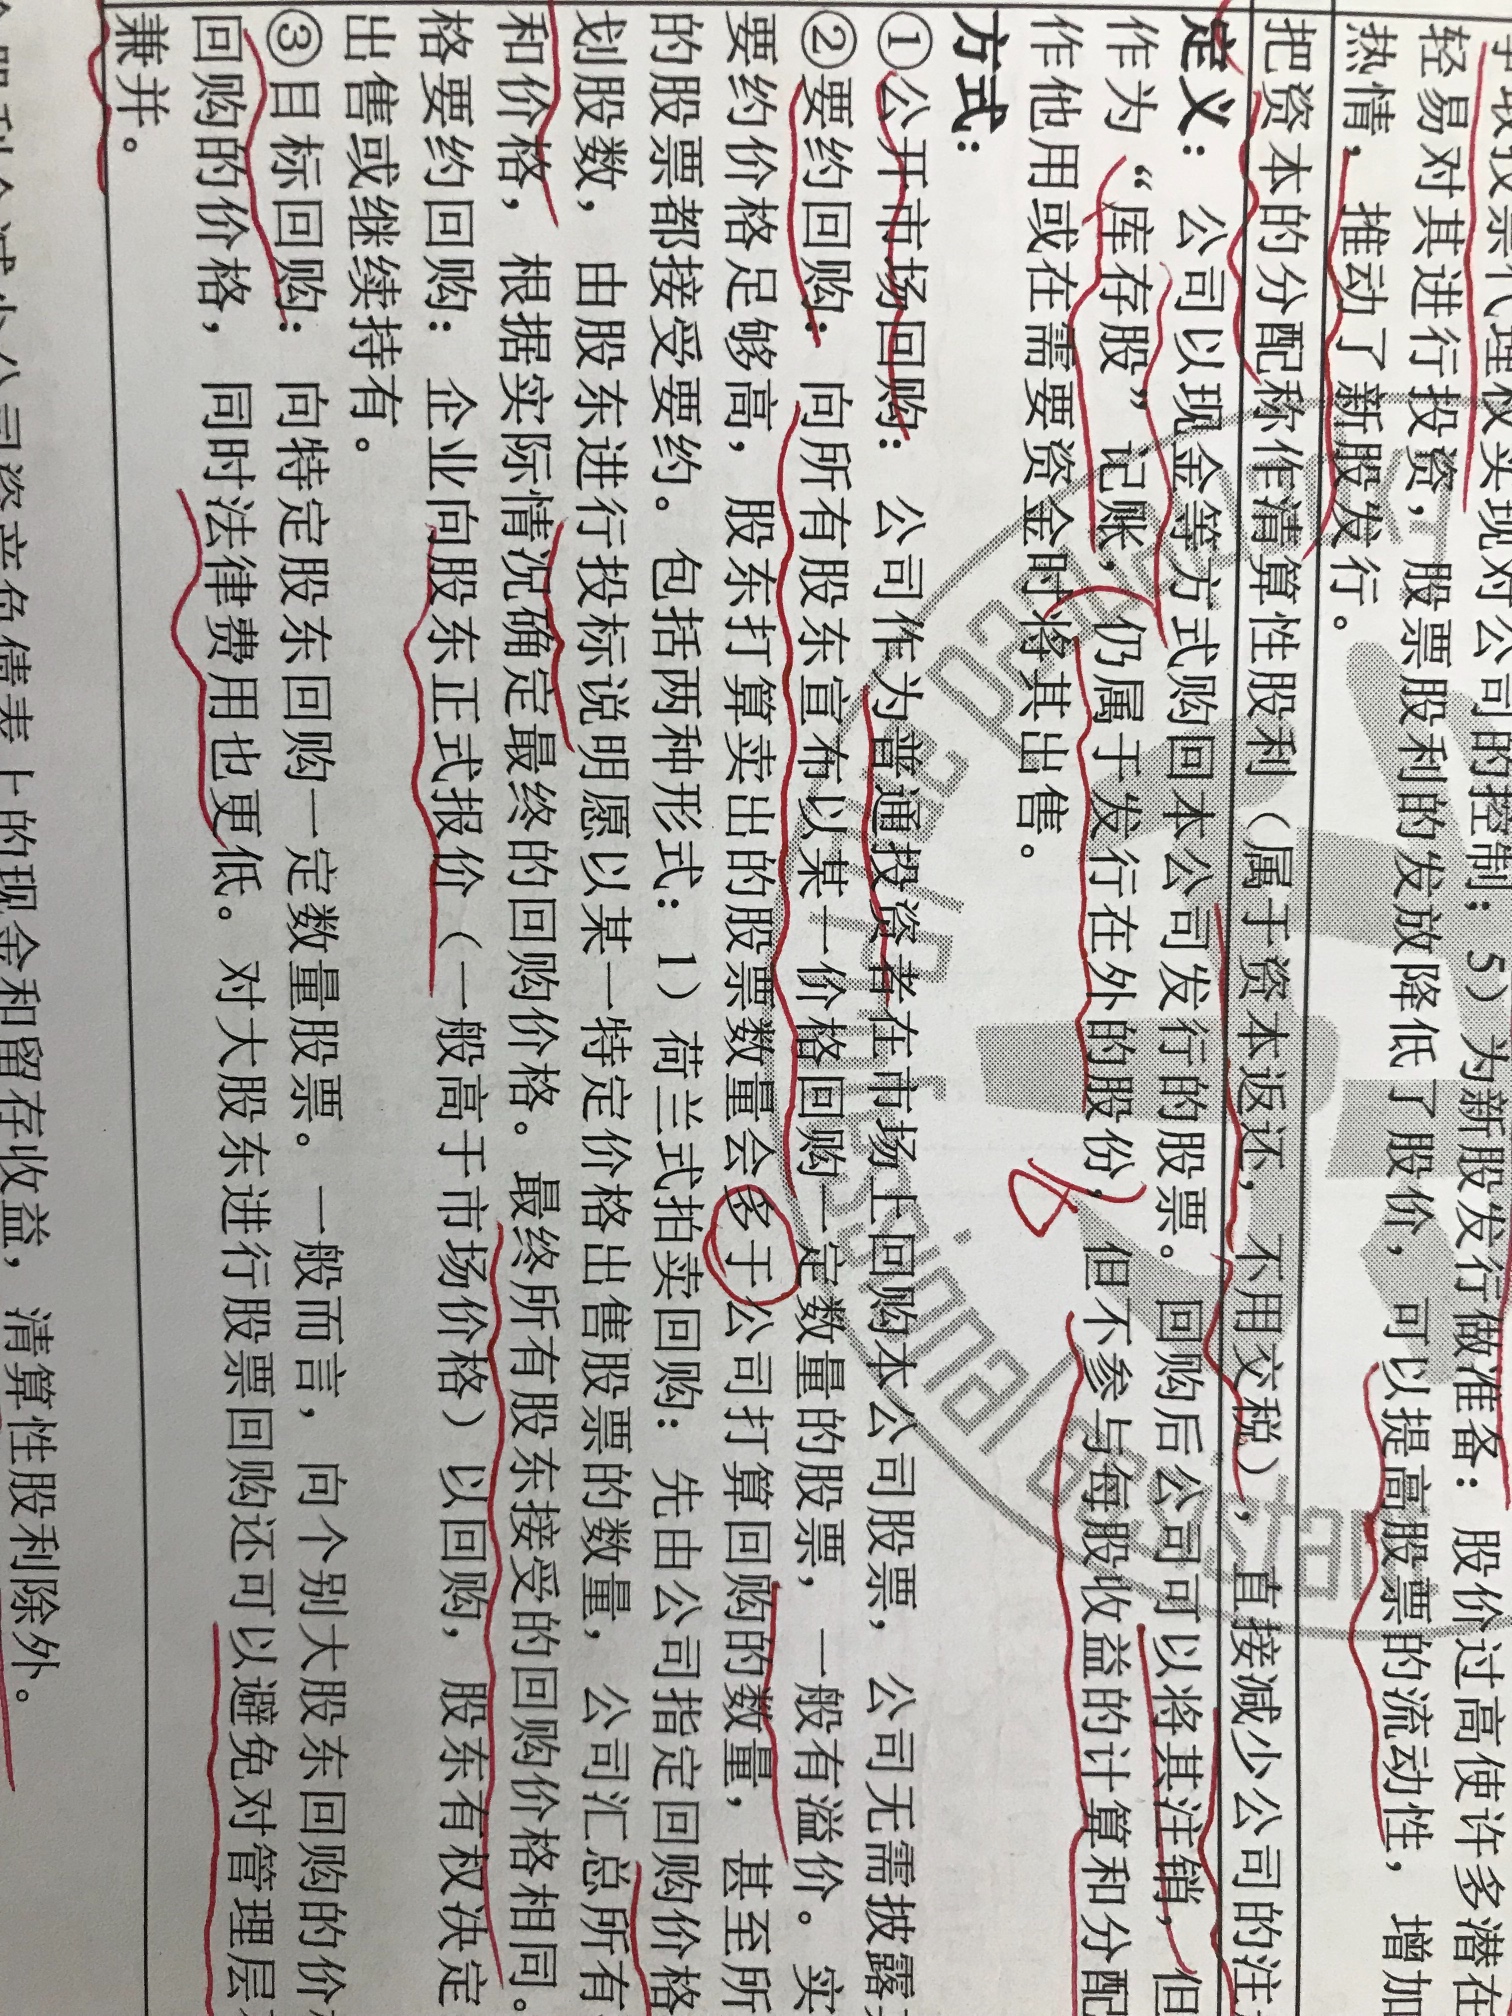 股票代理权实现对公司的控制；5）为新股发行做准备：股价过高使许多潜在
轻易对其进行投资，股票股利的发放降低了股价，可以提高股票的流动性，增加
热情，推动了新股发行。
把资本的分配称作清算性股利（属于资本返还，不用交税），直接减少公司的注
定义：公司以现金等方式购回本公司发行的股票。回购后公司可以将其注销，但
作为“库存股”记账，仍属于发行在外的股份，但不参与每股收益的计算和分配
作他用或在需要资金时将其出售。
方式：
①公开市场回购：公司作为普通投资者在市场上回购本公司股票，公司无需披露
②要约回购：向所有股东宣布以某一价格回购一定数量的股票，一般有溢价。实
要约价格足够高，股东打算卖出的股票数量会多于公司打算回购的数量，甚至所
的股票都接受要约。包括两种形式：1）荷兰式拍卖回购：先由公司指定回购价格
划股数，由股东进行投标说明愿以某一特定价格出售股票的数量，公司汇总所有
和价格，根据实际情况确定最终的回购价格。最终所有股东接受的回购价格相同。
格要约回购：企业向股东正式报价（一般高于市场价格）以回购，股东有权决定
出售或继续持有。
③目标回购：向特定股东回购一定数量股票。一般而言，向个别大股东回购的价
回购的价格，同时法律费用也更低。对大股东进行股票回购还可以避免对管理层
兼并。
公司资产负债表上的现金和留存收益，清算性股利除外。